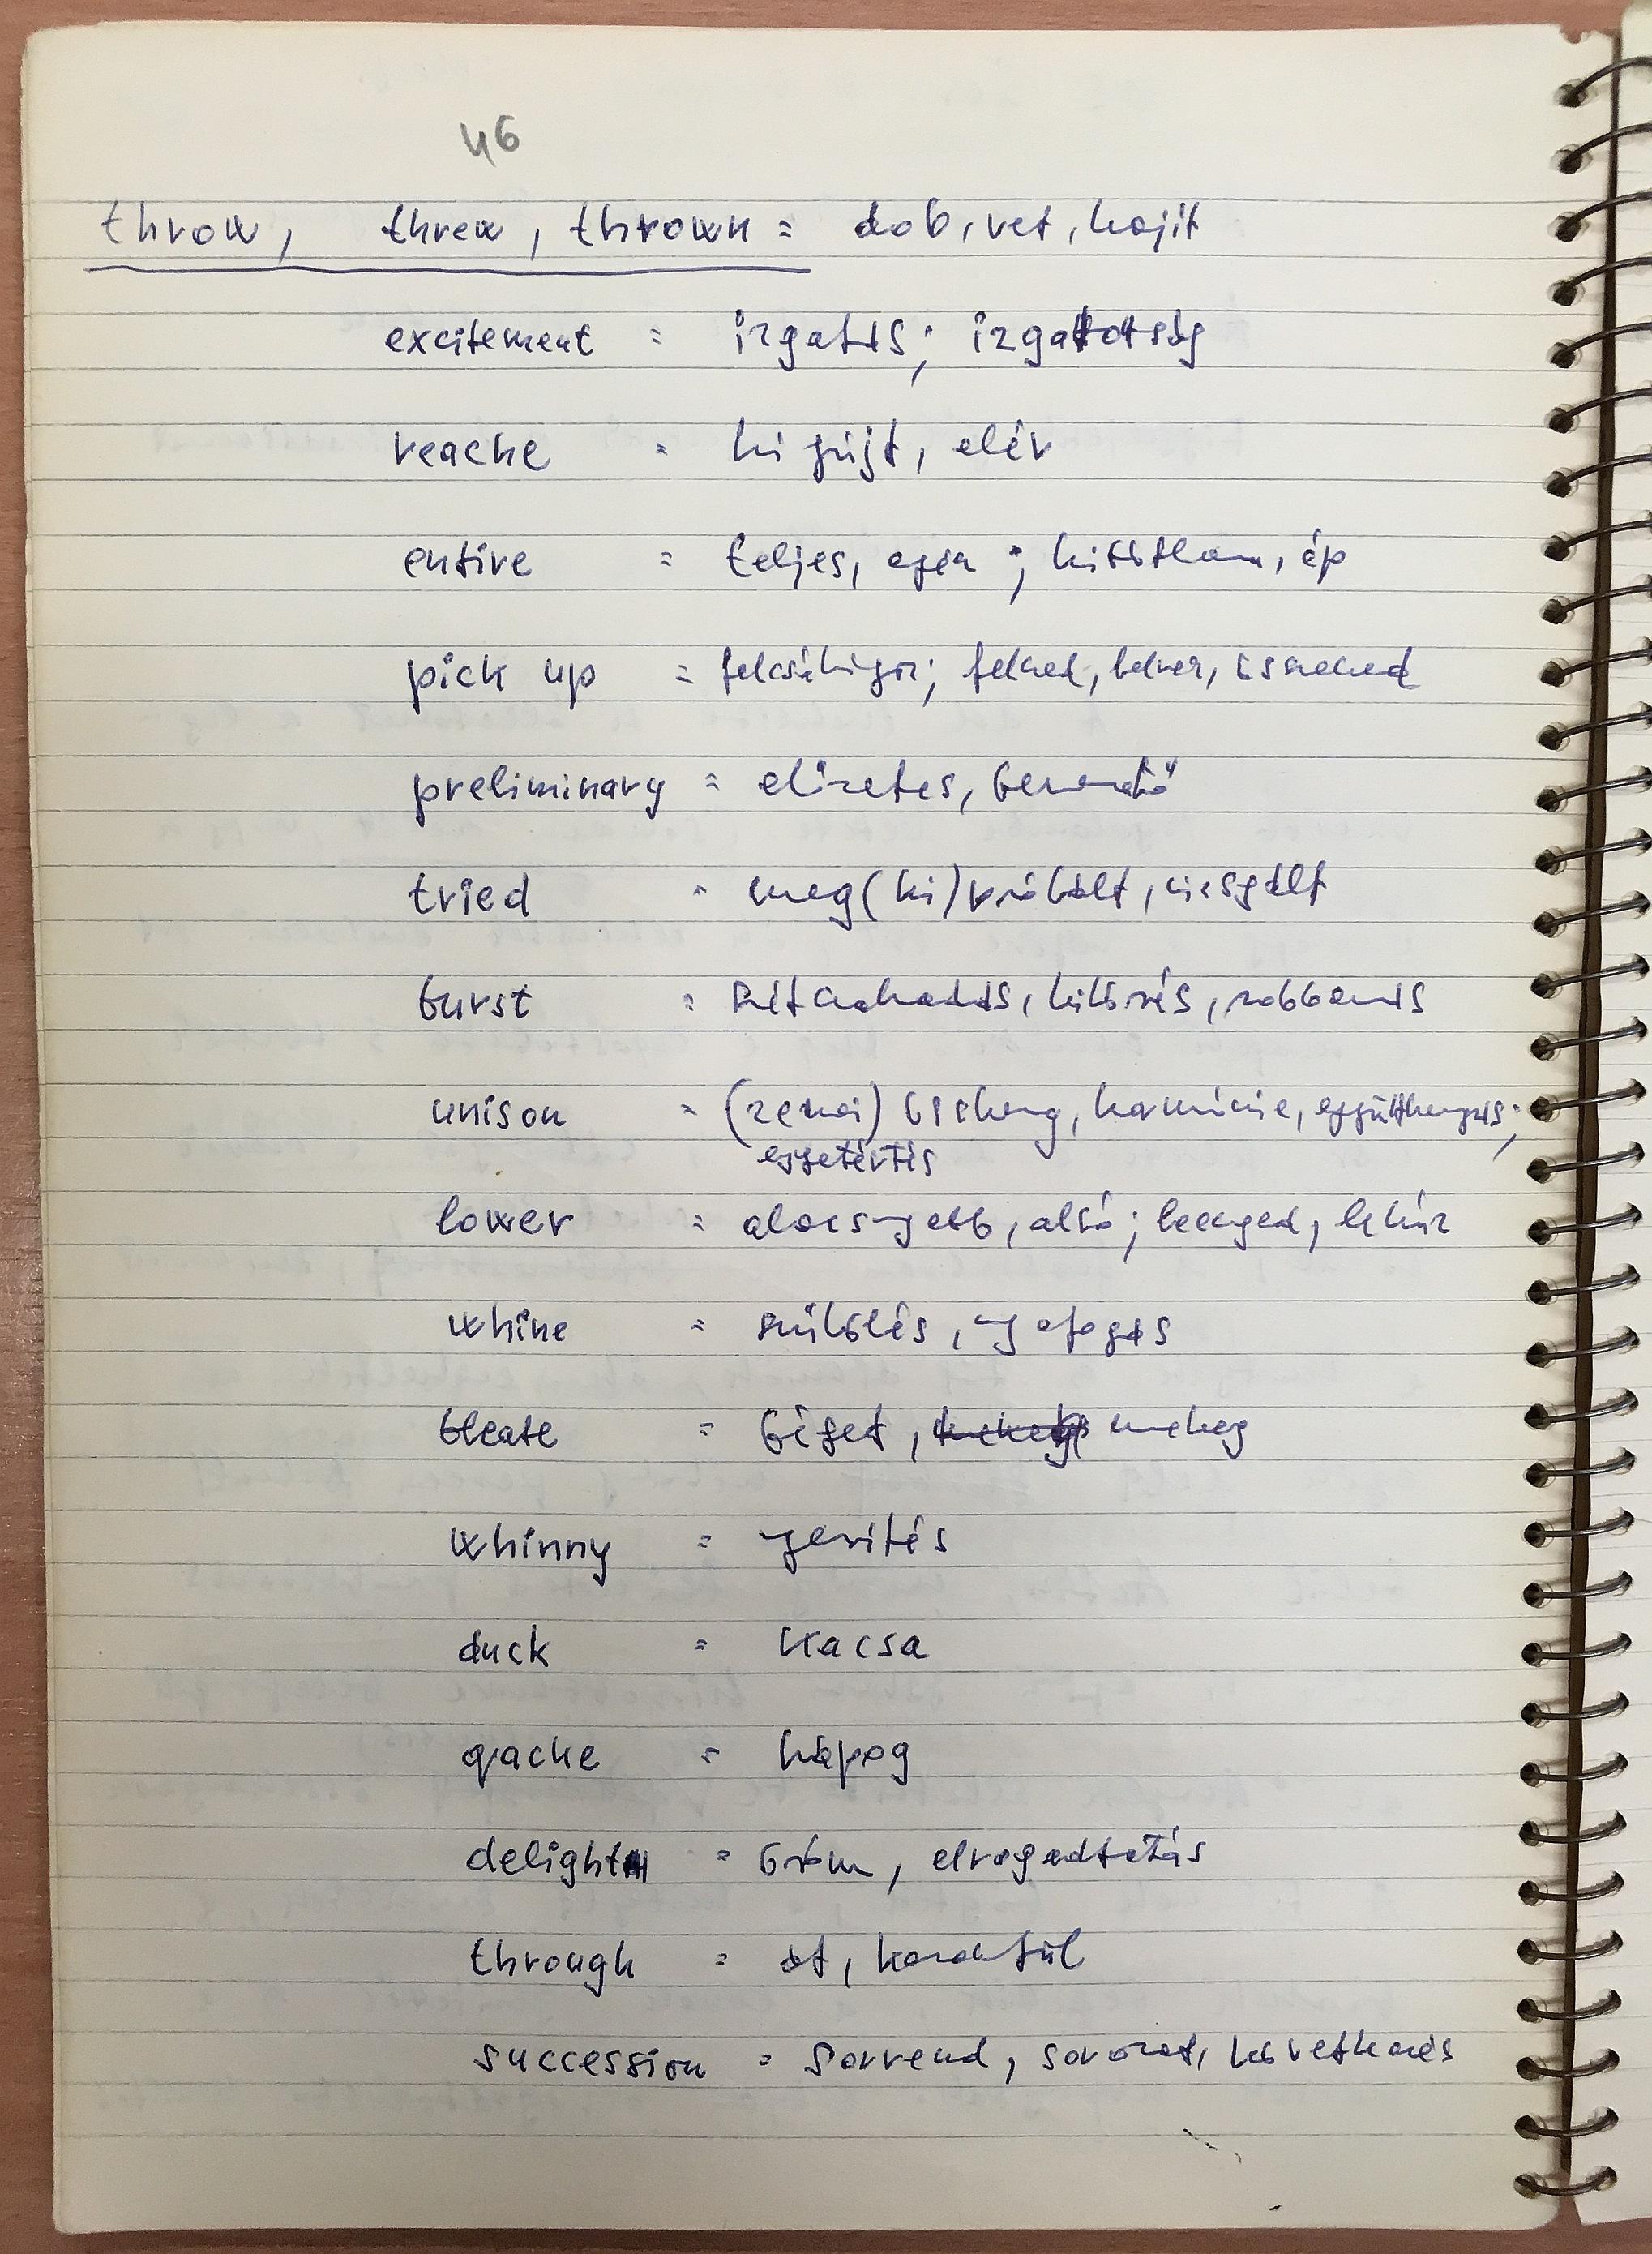 46
throw, threw, thrown = dob, vet, hajít
excitement = izgatás; izgatottság
reache = kinyújt, elér
entire = teljes, egész; hibátlan, ép
pick up = felcsákányoz; felszed, felvesz, összeszed
preliminary = előzetes, bevezető
tried = meg(ki)próbált, vizsgált
burst = szétszakadás, kitörés, robbanás
unison = (zenei) összhang, harmónia, együtthangzás;
egyetértés
lower = alacsonyabb, alsó; leenged, lehúz
whine = szűkölés, nyafogás
bleate = béget, mekeg
whinny = nyerítés
duck = kacsa
qacke = hápog
delight = öröm, elragadtatás
through = át, keresztül
succession = sorrend, sorozat, következés